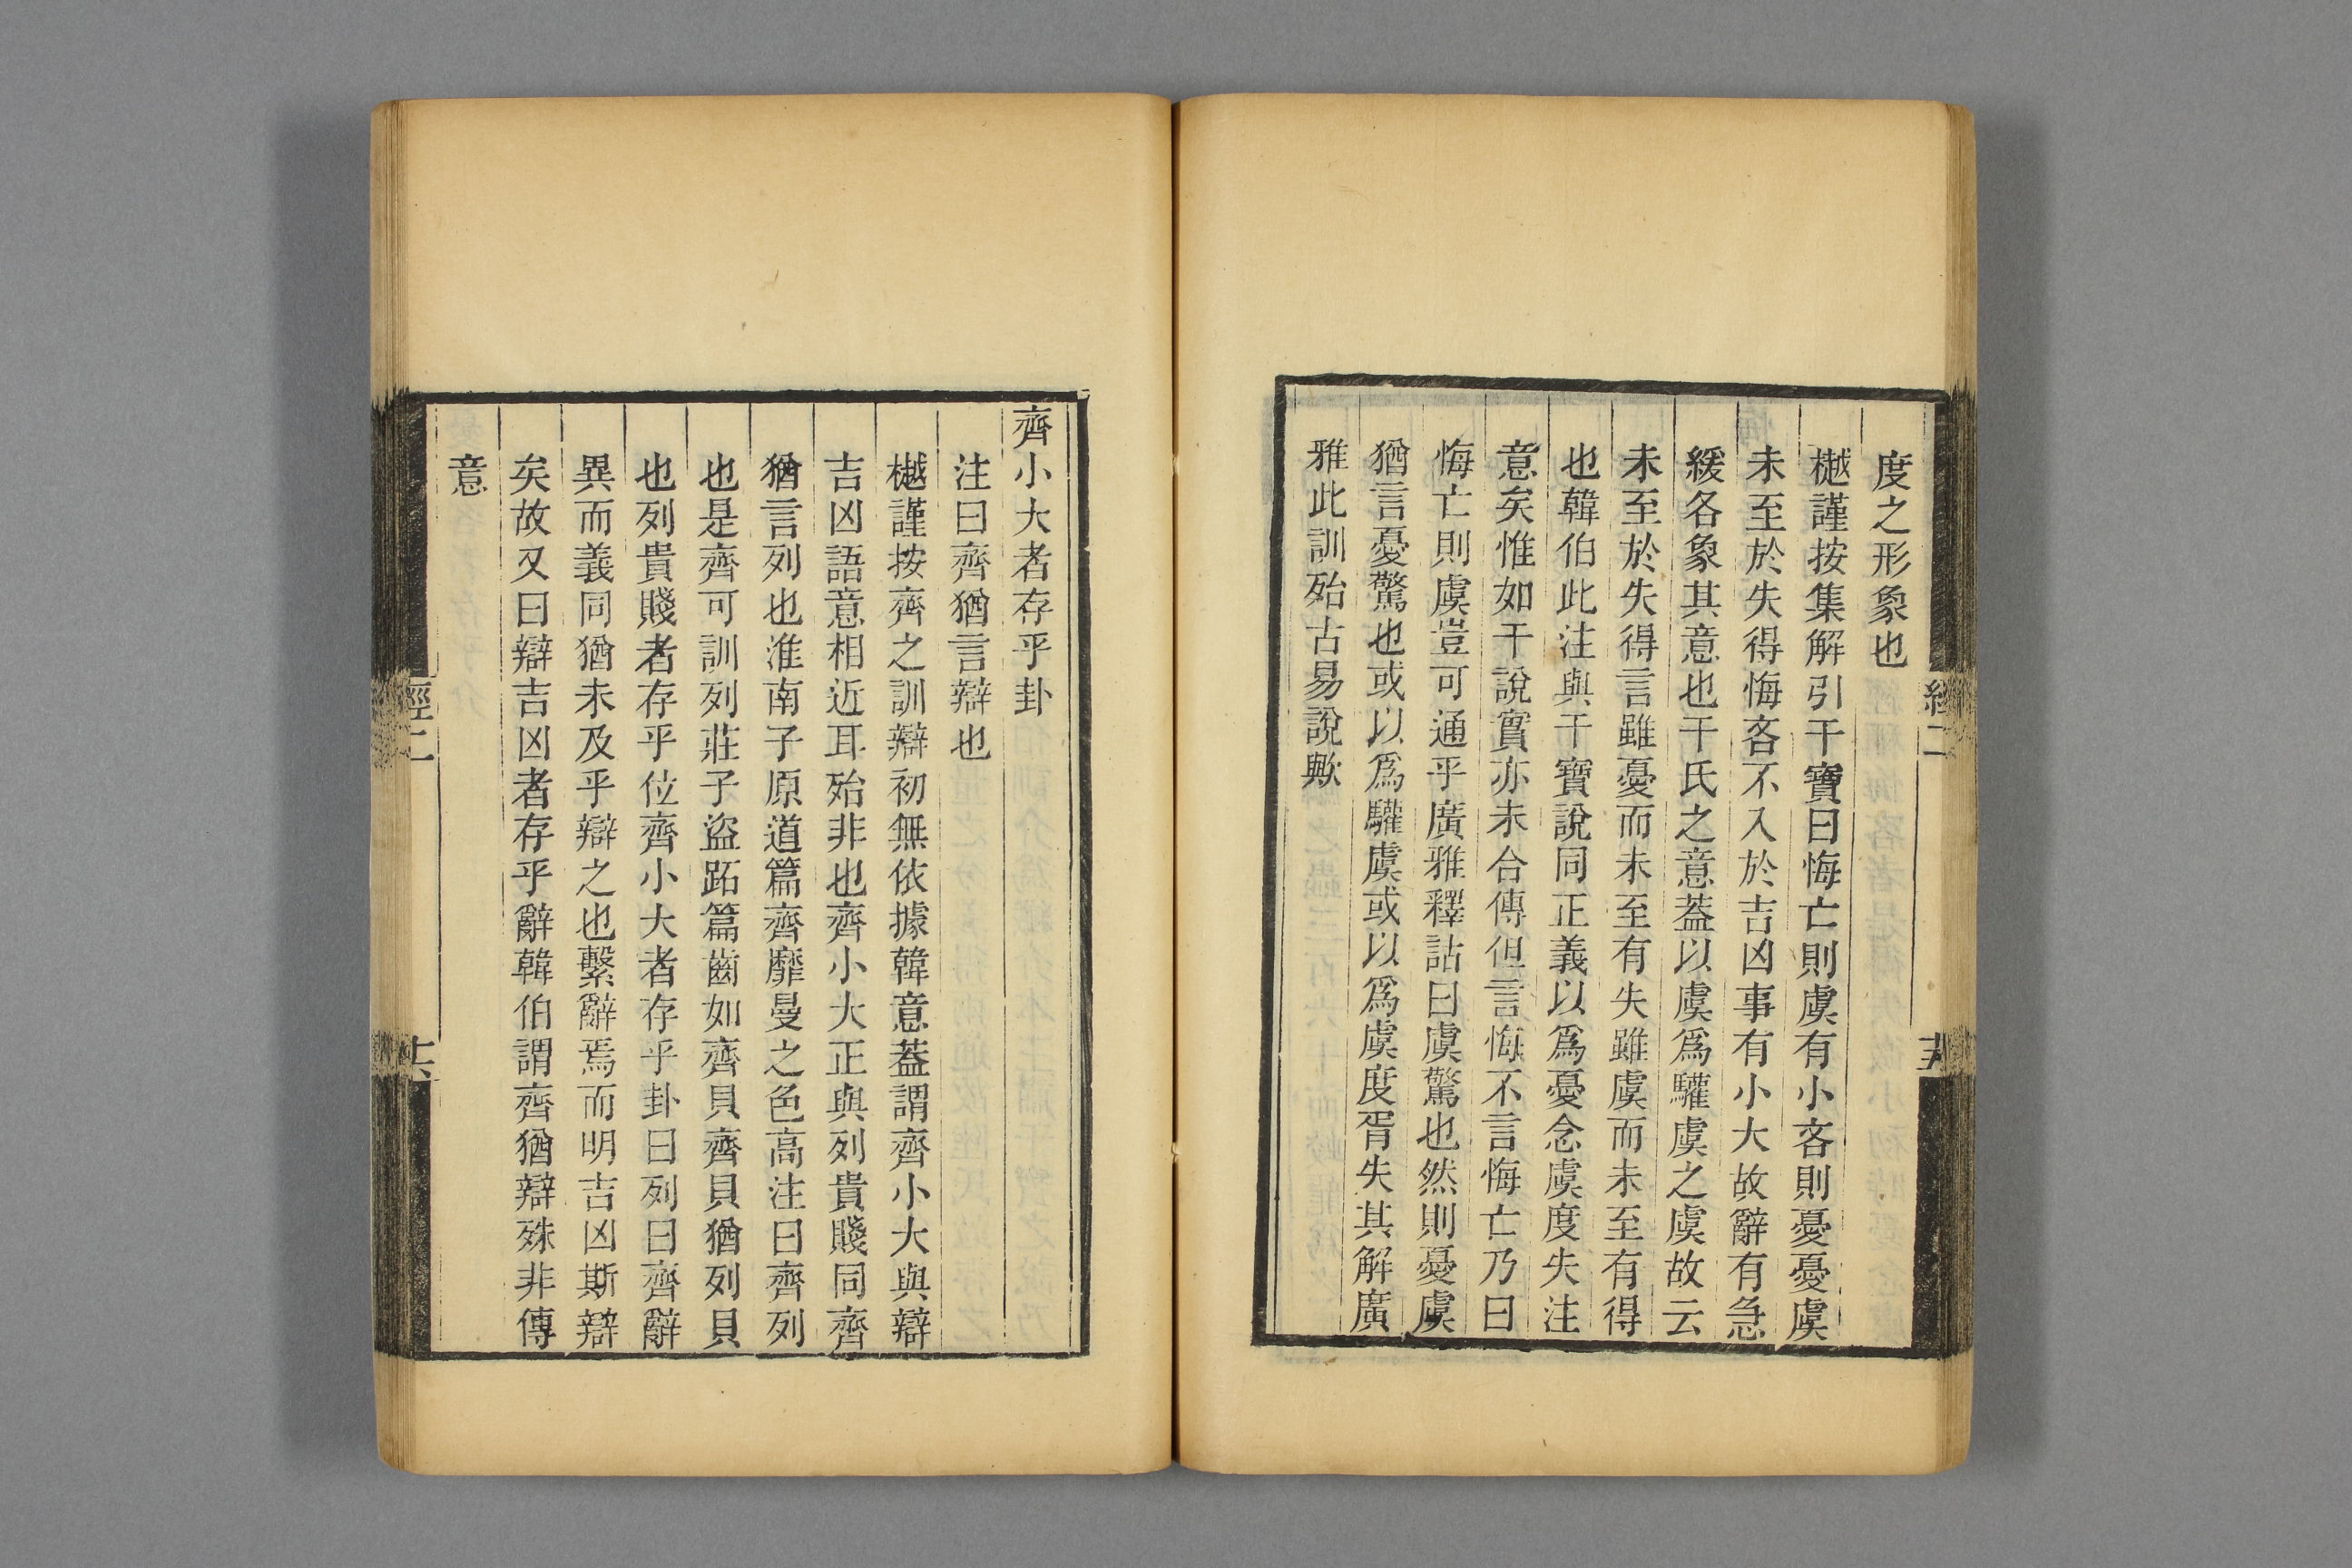 度之形象也
樾謹按集解引干寶曰悔亡則虞有小吝則憂憂虞
未至於失得悔吝不入於吉凶事有小大故辭有急
緩各象其意也干氏之意葢以虞爲驩虞之虞故云
未至於失得言雖憂而未至有失雖虞而未至有得
也韓伯此注與干寶說同正義以爲憂念虞度失注
意矣惟如干說實亦未合傳但言悔不言悔亡乃曰
悔亡則虞豈可通乎廣雅釋詁曰虞驚也然則憂虞
猶言憂驚也或以爲驩虞或以爲虞度胥失其解廣
雅此訓殆古易說歟
經二
齊小大者存乎卦
注曰齊猶言辯也
樾謹按齊之訓辯初無依據韓意葢謂齊小大與辯
吉凶語意相近耳殆非也齊小大正與列貴賤同齊
猶言列也淮南子原道篇齊靡曼之色高注曰齊列
也是齊可訓列莊子盜跖篇齒如齊貝齊貝猶列貝
也列貴賤者存乎位齊小大者存乎卦曰列曰齊辭
異而義同猶未及乎辯之也繫辭焉而明吉凶斯辯
矣故又曰辯吉凶者存乎辭韓伯謂齊猶辯殊非傳
意
經二
十六